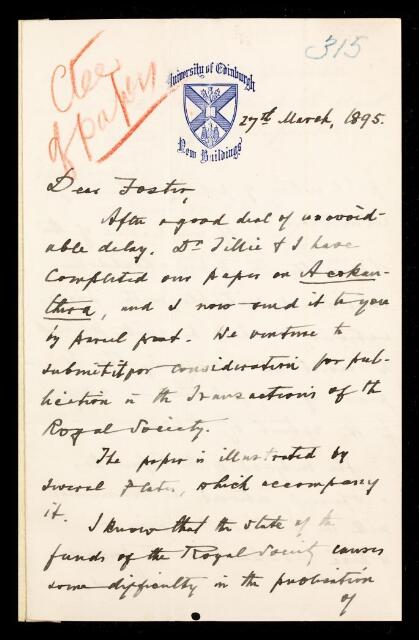 315
of papers
University of Edinburgh
New Buildings
27th March, 1895.
Dear Foster,
After a good deal of unavoid-
able delay, Dr Tillie & I have
completed our paper on Acokan-
thera, and I now send it to you
by parcel post. We venture to
submit it for consideration for pub-
lication in the Transactions of the
Royal Society.
The paper is illustrated by
several Plates, which accompany
it.
I know that the state of the
funds of the Royal Society causes
some difficulty in the publication
of